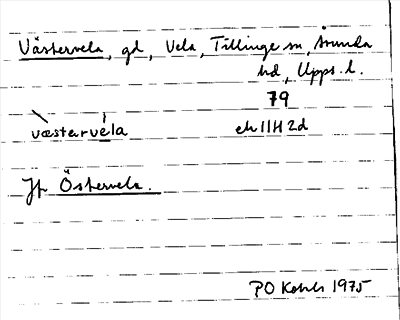 Västervela, gd, Vela, Tillinge sn, Åsunda
hd, Upps. l.
79
væstarvéla ek 11H 2d
Jfr Östervela.
PO 1975